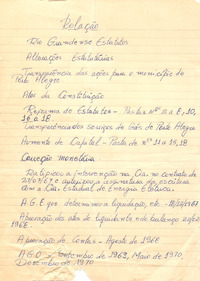 Relação
Rio Grandense Estatutos
Alterações Estatutárias
Transferência das ações para o município de
Pôrto Alegre
Ata da Constituição
Reforma de Estatutos - Pastas nº 11 a E, 10,
16 a 18
Transferência dos serviços de Gás de Pôrto Alegre
Aumento de Capital - Pasta de nº 11 a 15, 18
Correção monetária
Ratificou a intervenção na Cia. no contrato de
e autorizou a assinatura da escritura
com a Cia Estadual de Energia Elétrica.
A.G.E que determinou a liquidação, etc. - 18/12/1961
Aprovação dos atos do liquidante e do balanço
1962.
Aprovação de contas - Agosto de 1966
A.G.O - Setembro de 1969, Maio de 1970,
Dezembro de 1970